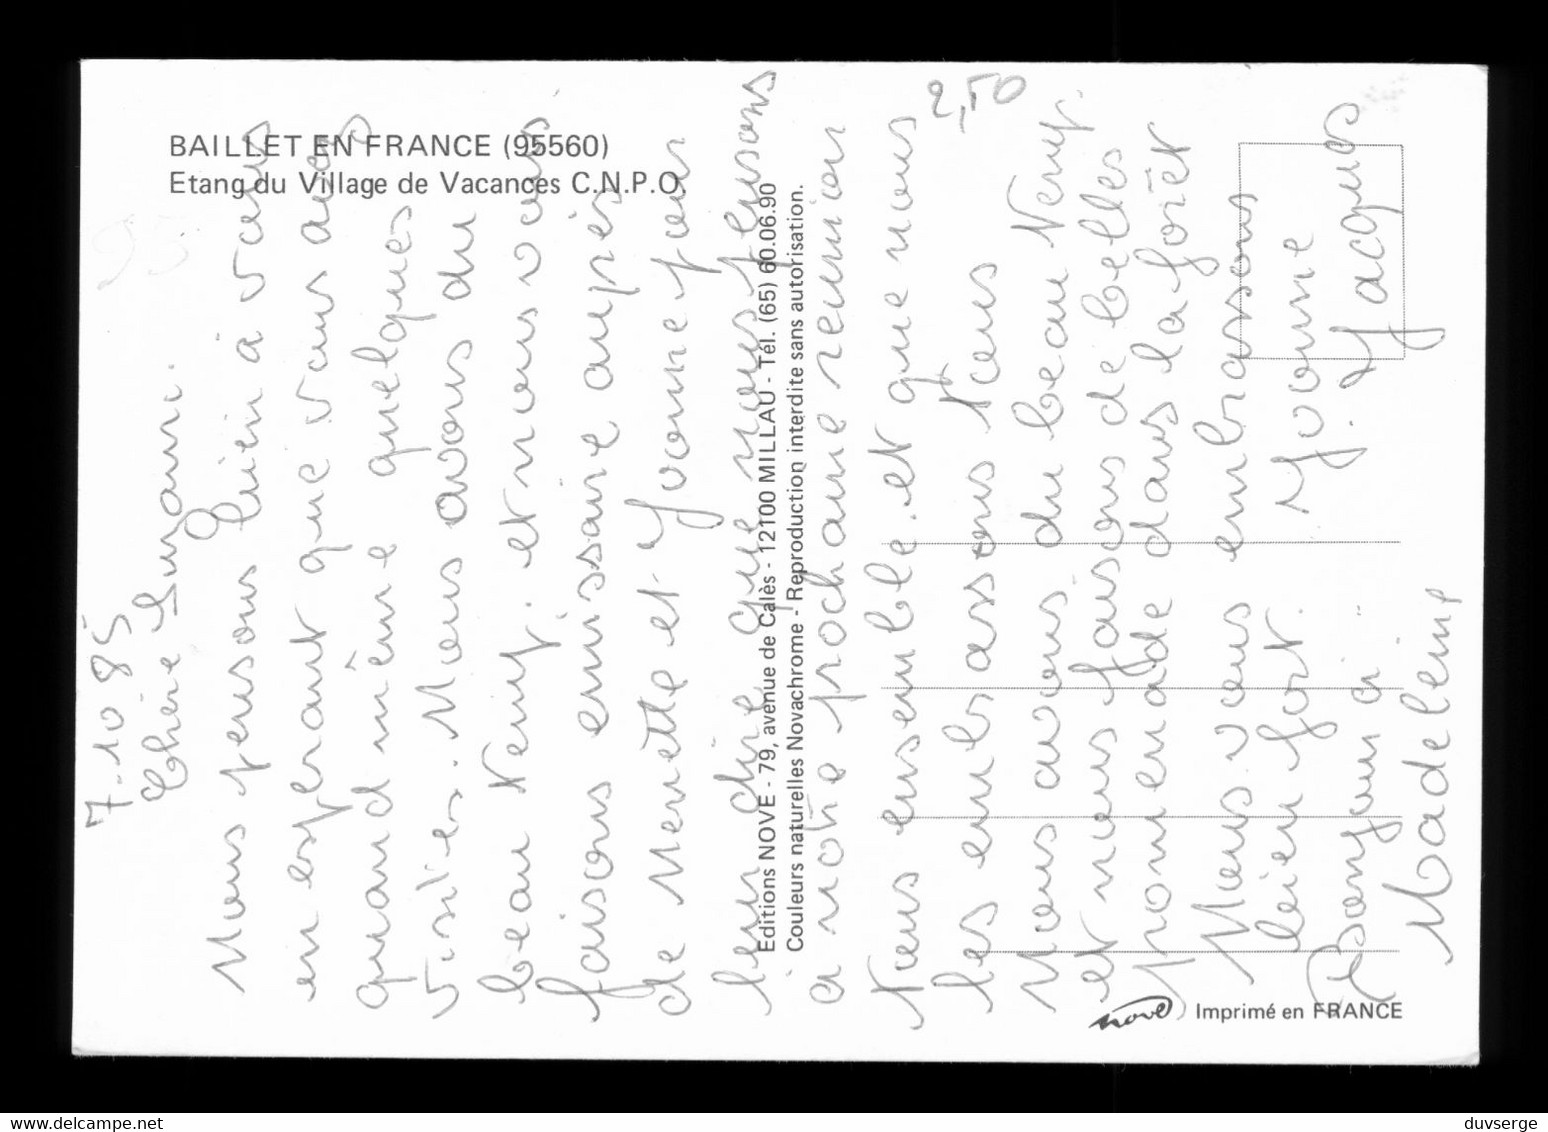 BAILLET EN FRANCE (95560)
Etang du Village de Vacances C.N.P.O.
Editions NOVE - 79, avenue de Calès - 12100 MILLAU - Tél. (65) 60.06.90
Couleurs naturelles Novachrome - Reproduction interdite sans autorisation.
nove Imprimé en FRANCE
2,50
7-10 85
Chère Suzanne.
Nous pensons bien à vous
en espérant que vous avez
quand même quelques
visites. Nous avons du
beau temp. et nous vous
faisons émissaire auprès
de Menette et Yvonne pour
leur dire que nous pensons
a notre prochaine reunion
tous ensemble. et que nous
les embrassons tous
Nous avons du beau temp.
et nous faisons de belles
promenade dans la forêt
Nous vous embrassons
bien fort. Yvonne
Bonjour a Y. Jacques
Madeleine
duvserge delcampe.net